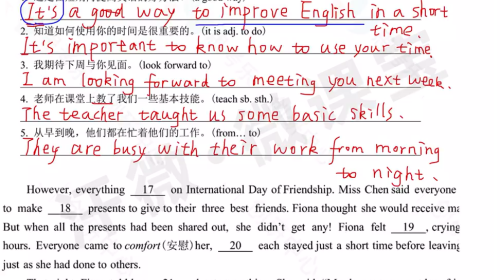 It's a good way to improve English in a short time.
2. 知道如何使用你的时间是很重要的。(it is adj. to do)
It's important to know how to use your time.
3. 我期待下周与你见面。(look forward to)
I am looking forward to meeting you next week.
4. 老师在课堂上教了我们一些基本技能。(teach sb. sth.)
The teacher taught us some basic skills.
5. 从早到晚，他们都在忙着他们的工作。(from... to)
They are busy with their work from morning
to night.
However, everything 17 on International Day of Friendship. Miss Chen said everyone
to make 18 presents to give to their three best friends. Fiona thought she would receive
But when all the presents had been shared out, she didn't get any! Fiona felt 19 , crying
hours. Everyone came to comfort (安慰) her, 20 each stayed just a short time before leaving
just as she had done to others.